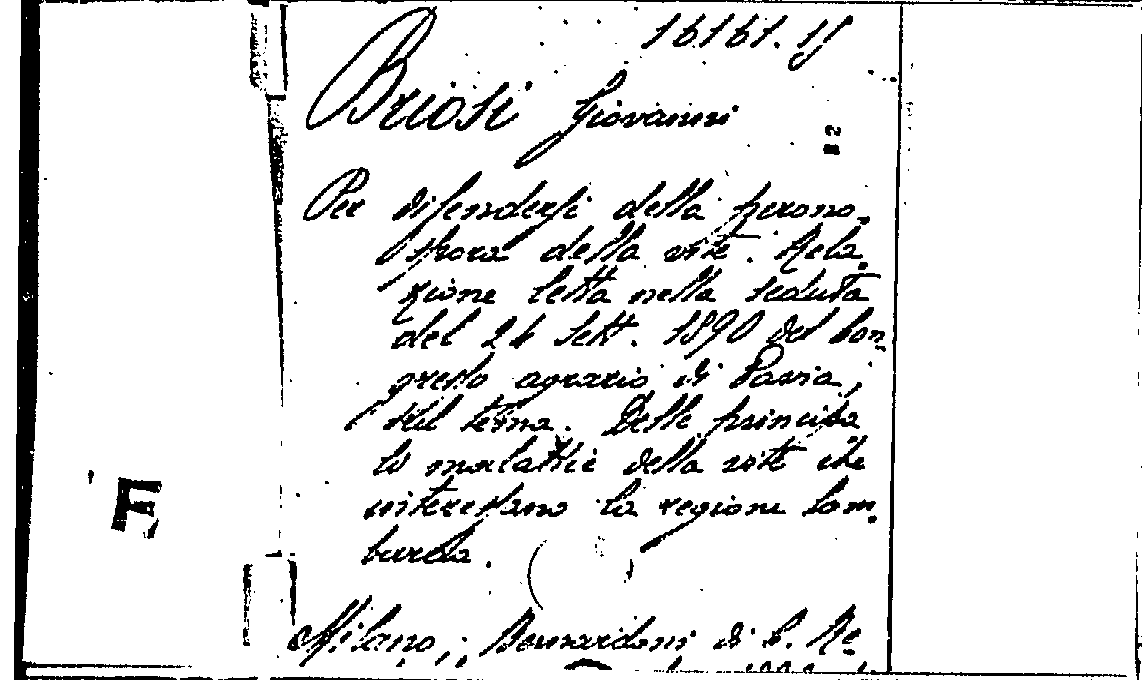 16161.15
Briosi Giovanni
22
Per difendersi della perono-
spora della vite. Rela-
zione letta nella seduta
del 26 Sett. 1890 del Con-
gresso agrario di Pavia,
sul tema. Delle principa
li malattie della vite che
interessano la regione lom-
barda.
F
Milano, Bernardoni di C. Re-